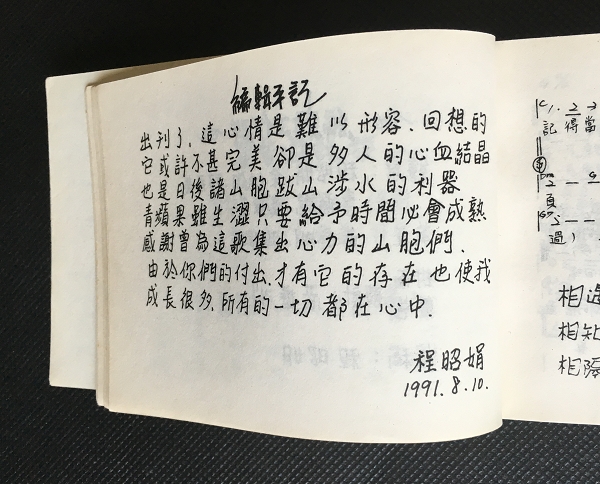 編輯手記
出刊了，這心情是難以形容．回想的
它或許不甚完美卻是多人的心血結晶
也是日後諸山胞跋山涉水的利器
青蘋果雖生澀只要給予時間必會成熟
感謝曾為這歌集出心力的山胞們．
由於你們的付出，才有它的存在也使我
成長很多，所有的一切都在心中．
程昭娟
1991.8.10.
記得當
頁
過）
相逢
相知
相隔